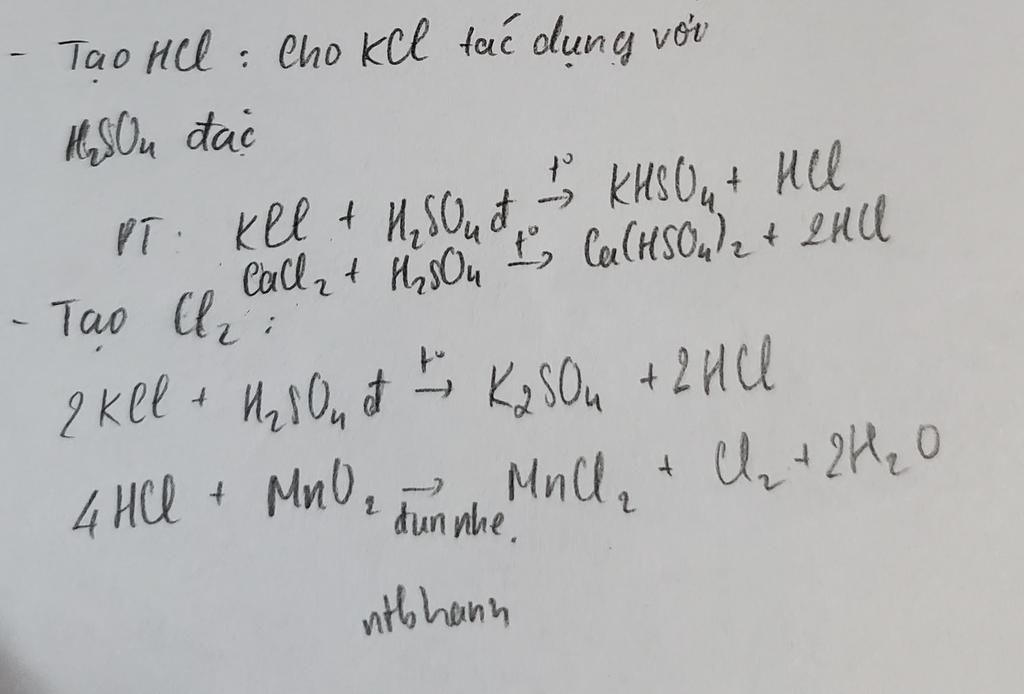 - Tạo HCl : Cho KCl tác dụng với
H₂SO₄ đặc
PT: KCl + H₂SO₄ đ t° → KHSO₄ + HCl
CaCl₂ + H₂SO₄ t° → Ca(HSO₄)₂ + 2HCl
- Tạo Cl₂ :
2KCl + H₂SO₄ đ t° → K₂SO₄ + 2HCl
4HCl + MnO₂ → đun nhẹ. MnCl₂ + Cl₂ + 2H₂O